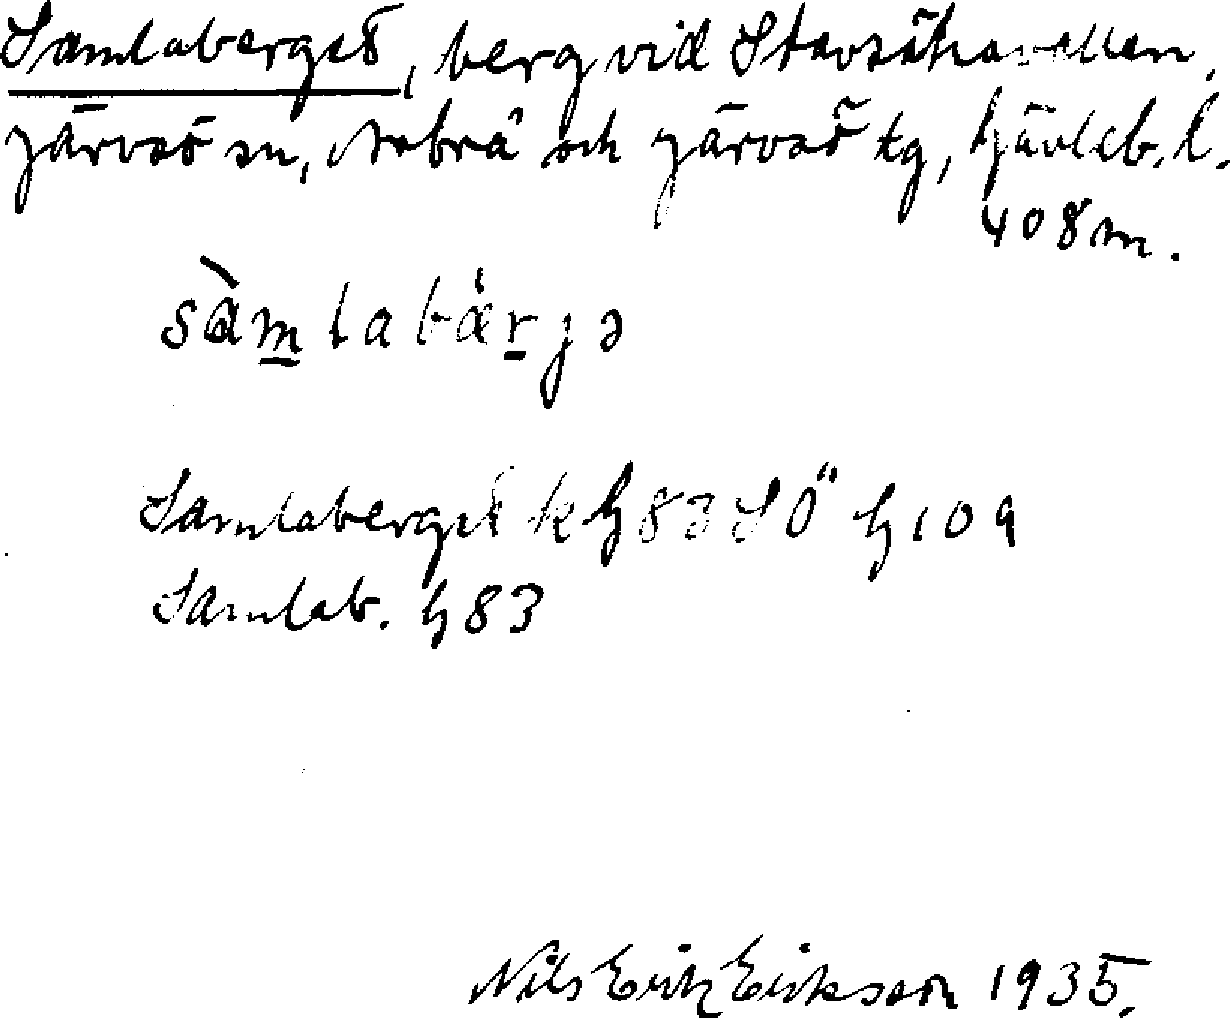 Samlaberget, berg vid Stavsätravallen,
Järvsö sn, Arbrå och Järvsö tg, Gävleb. l.
408 m.
sàmlabärjə
Samlaberget k G 83 SÖ G 109
Samlab. G 83
Nils Erik Eriksson 1935.